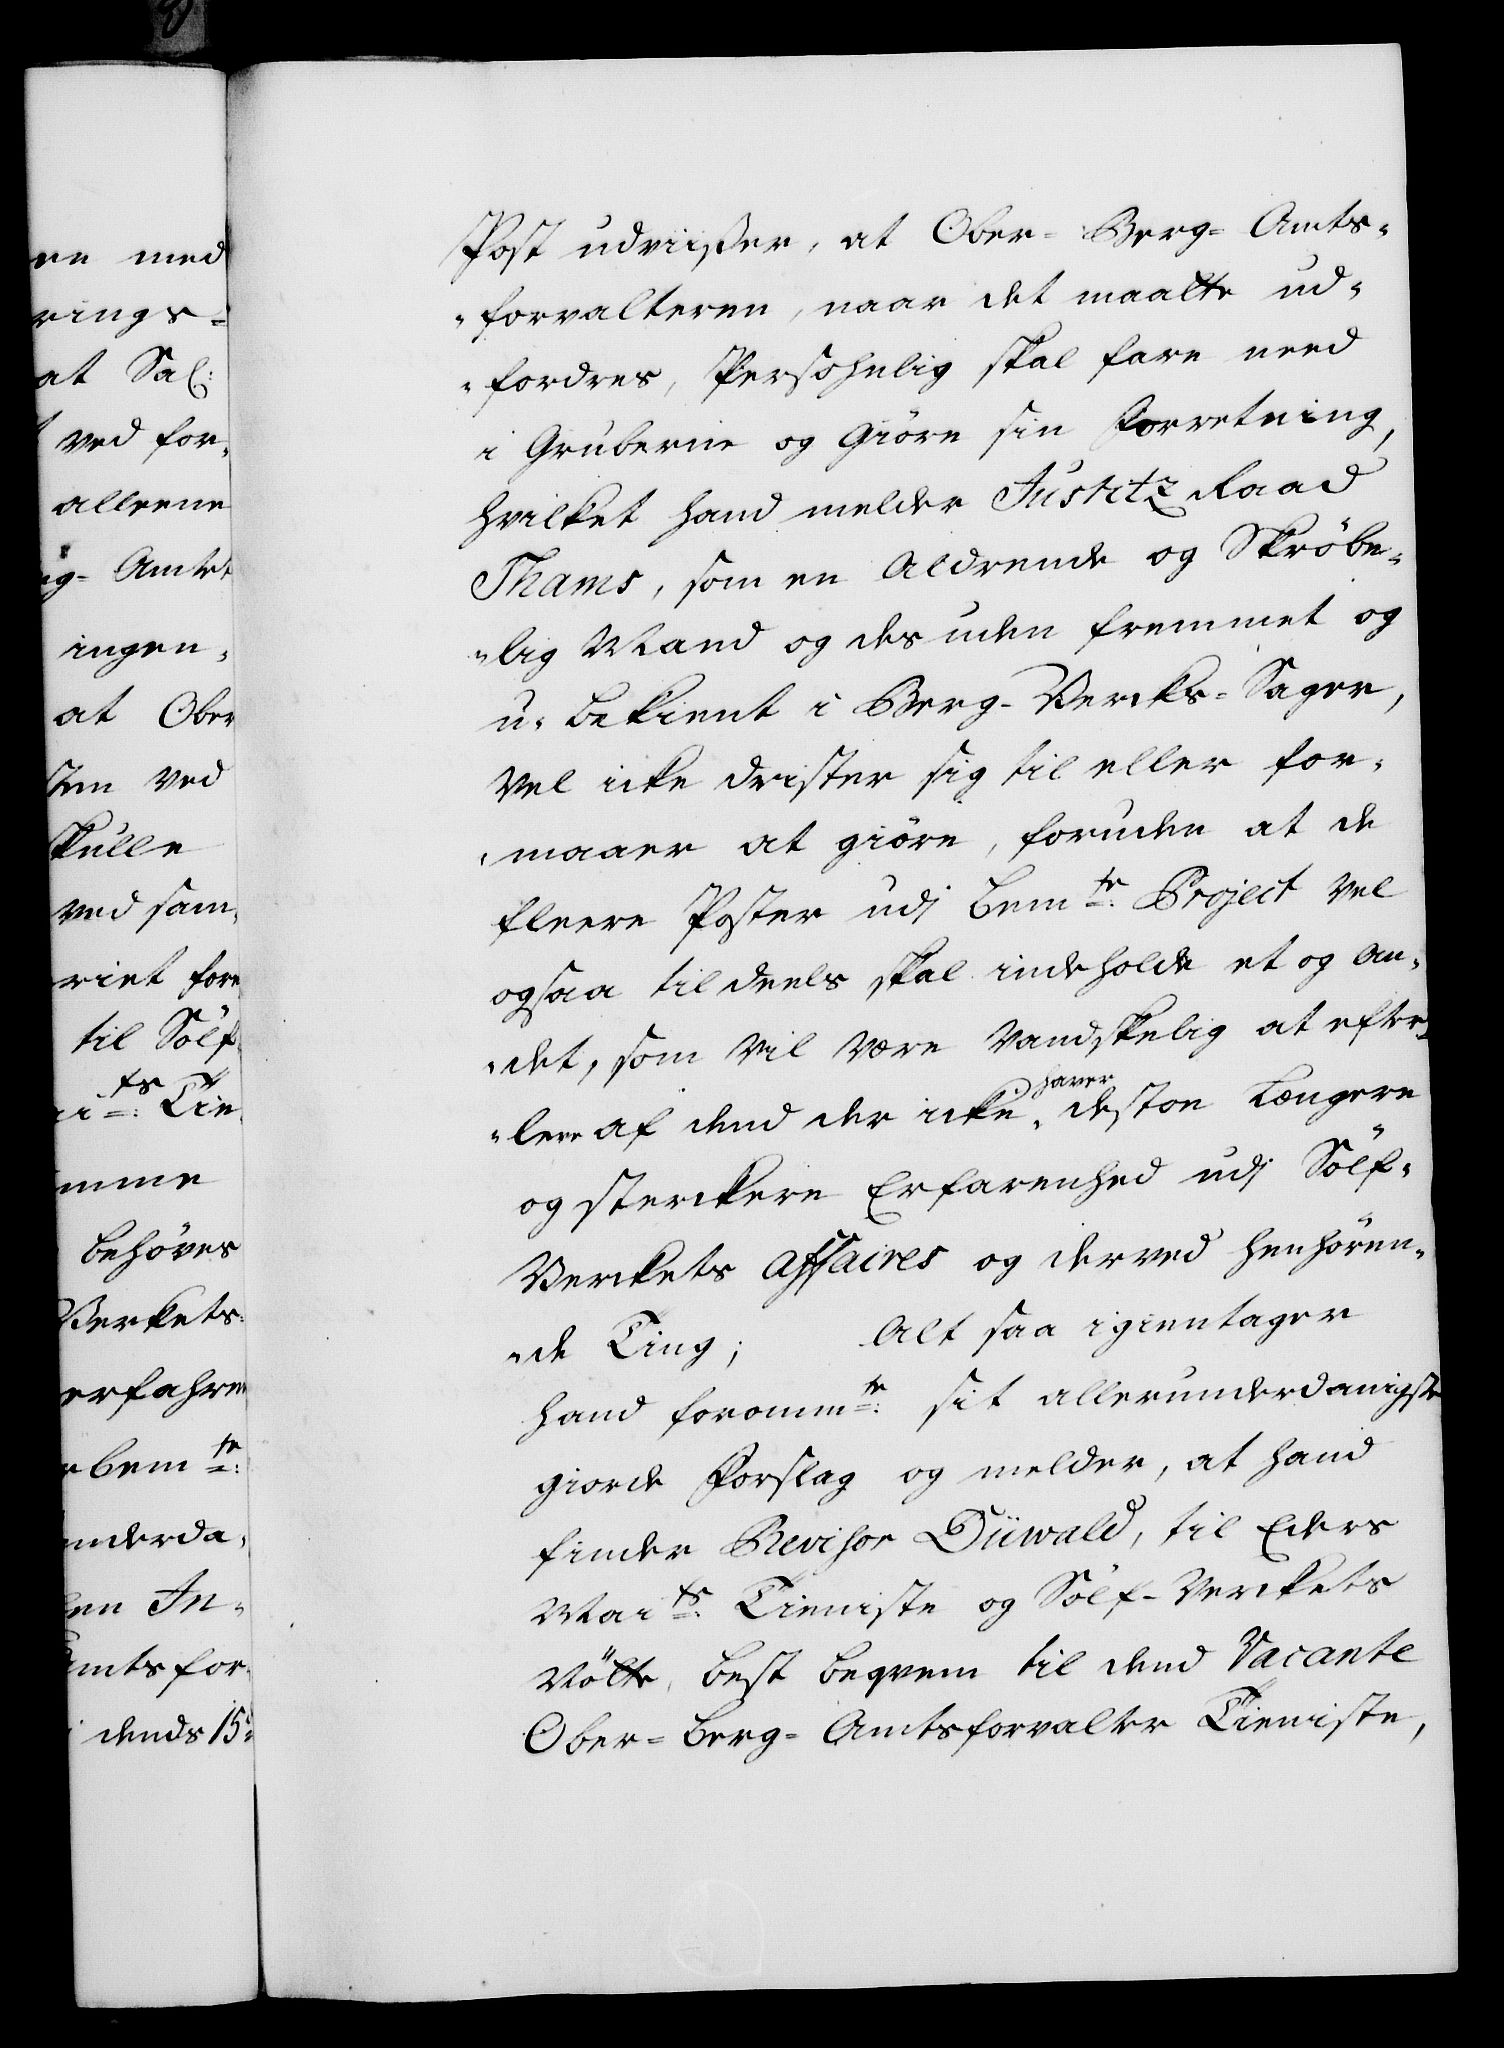 en med
rings-
at Sal:
ved for-
alleene
ig- Amtet
ingen-
at Ober
sten ved
skulle
ved sam-
riet fore
til Sölf-
ii ts: Tie-
mme
behöves
Verkets-
erfahren
rbemte:
underda-
en In-
Amtsfor-
dends 15:
Post udviißer, at Ober- Berg- Amts-
-forvalteren, naar det maatte ud-
-fordres, Persohnlig skal fare need
i Gruberne og Giöre sin Forretning,
hvilket hand melder Justitz Raad
Thams, som en Aldrende og Skröbe-
-lig Mand og desuden fremmet og
u-bekient i Berg-Vercks-Sager,
vel icke drister sig til eller for-
-maaer at giöre, foruden at de
fleere Poster udj bemte: Project vel
ogsaa til deels skal indeholde et og an-
-det, som vil være vandskelig at efter-
-leve af dend der icke haver desto længere
og sterckere Erfarenhed udj Sölf-
Verckets Affaires og derved henhören-
-de Ting; Alt saa igientager
hand forommte: sit allerunderdanigst
giorde Forslag og melder, at hand
finder Revisor Düwald, til Eders
Maits: Tieniste og Sölf-Verckets
Nötte, best beqvem til dend Vacante
Ober- Berg- Amtsforvalter Tieniste,